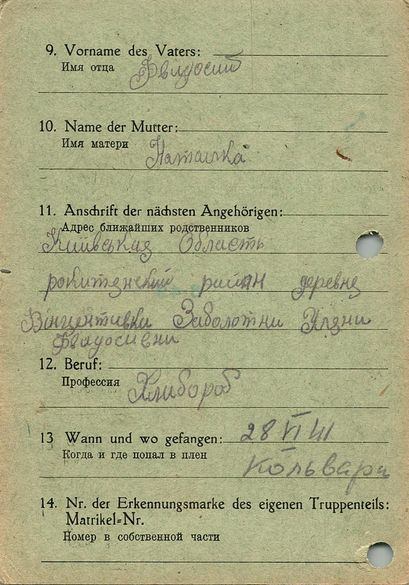 9. Vorname des Vaters:
Имя отца Федосий
10. Name der Mutter:
Имя матери Наталка
11. Anschrift der nächsten Angehörigen:
Адрес ближайших родственников
Київская Область
рокитянский район деревня
Винцентивка Заболотни Уляни
Федосивни
12. Beruf:
Профессия Хлибороб
13 Wann und wo gefangen: 28 VI 41
Когда и где попал в плен Кольвари
14. Nr. der Erkennungsmarke des eigenen Truppenteils:
Matrikel=Nr.
Номер в собственной части